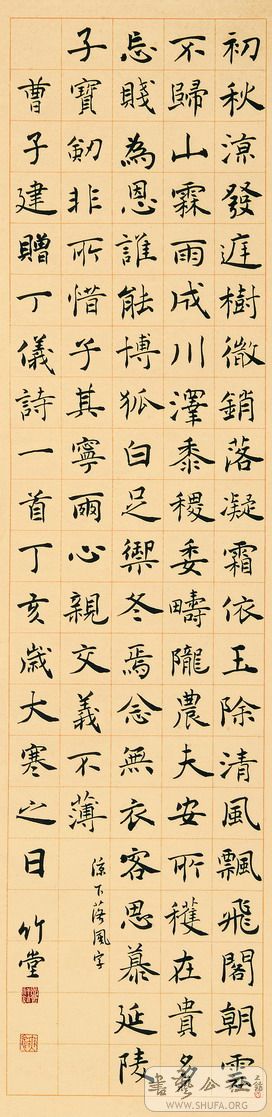 初秋涼發庭樹微銷落凝霜依玉除清風飄飛閣朝雲
不歸山霖雨成川澤黍稷委疇隴農夫安所穫在貴多
忘賤為恩誰能博狐白足禦冬焉念無衣客思慕延陵
子寶劍非所惜子其寧爾心親交義不薄
涼下落風字
曹子建贈丁儀詩一首丁亥歲大寒之日 竹堂
書藝公社
WWW.SHUFA.ORG